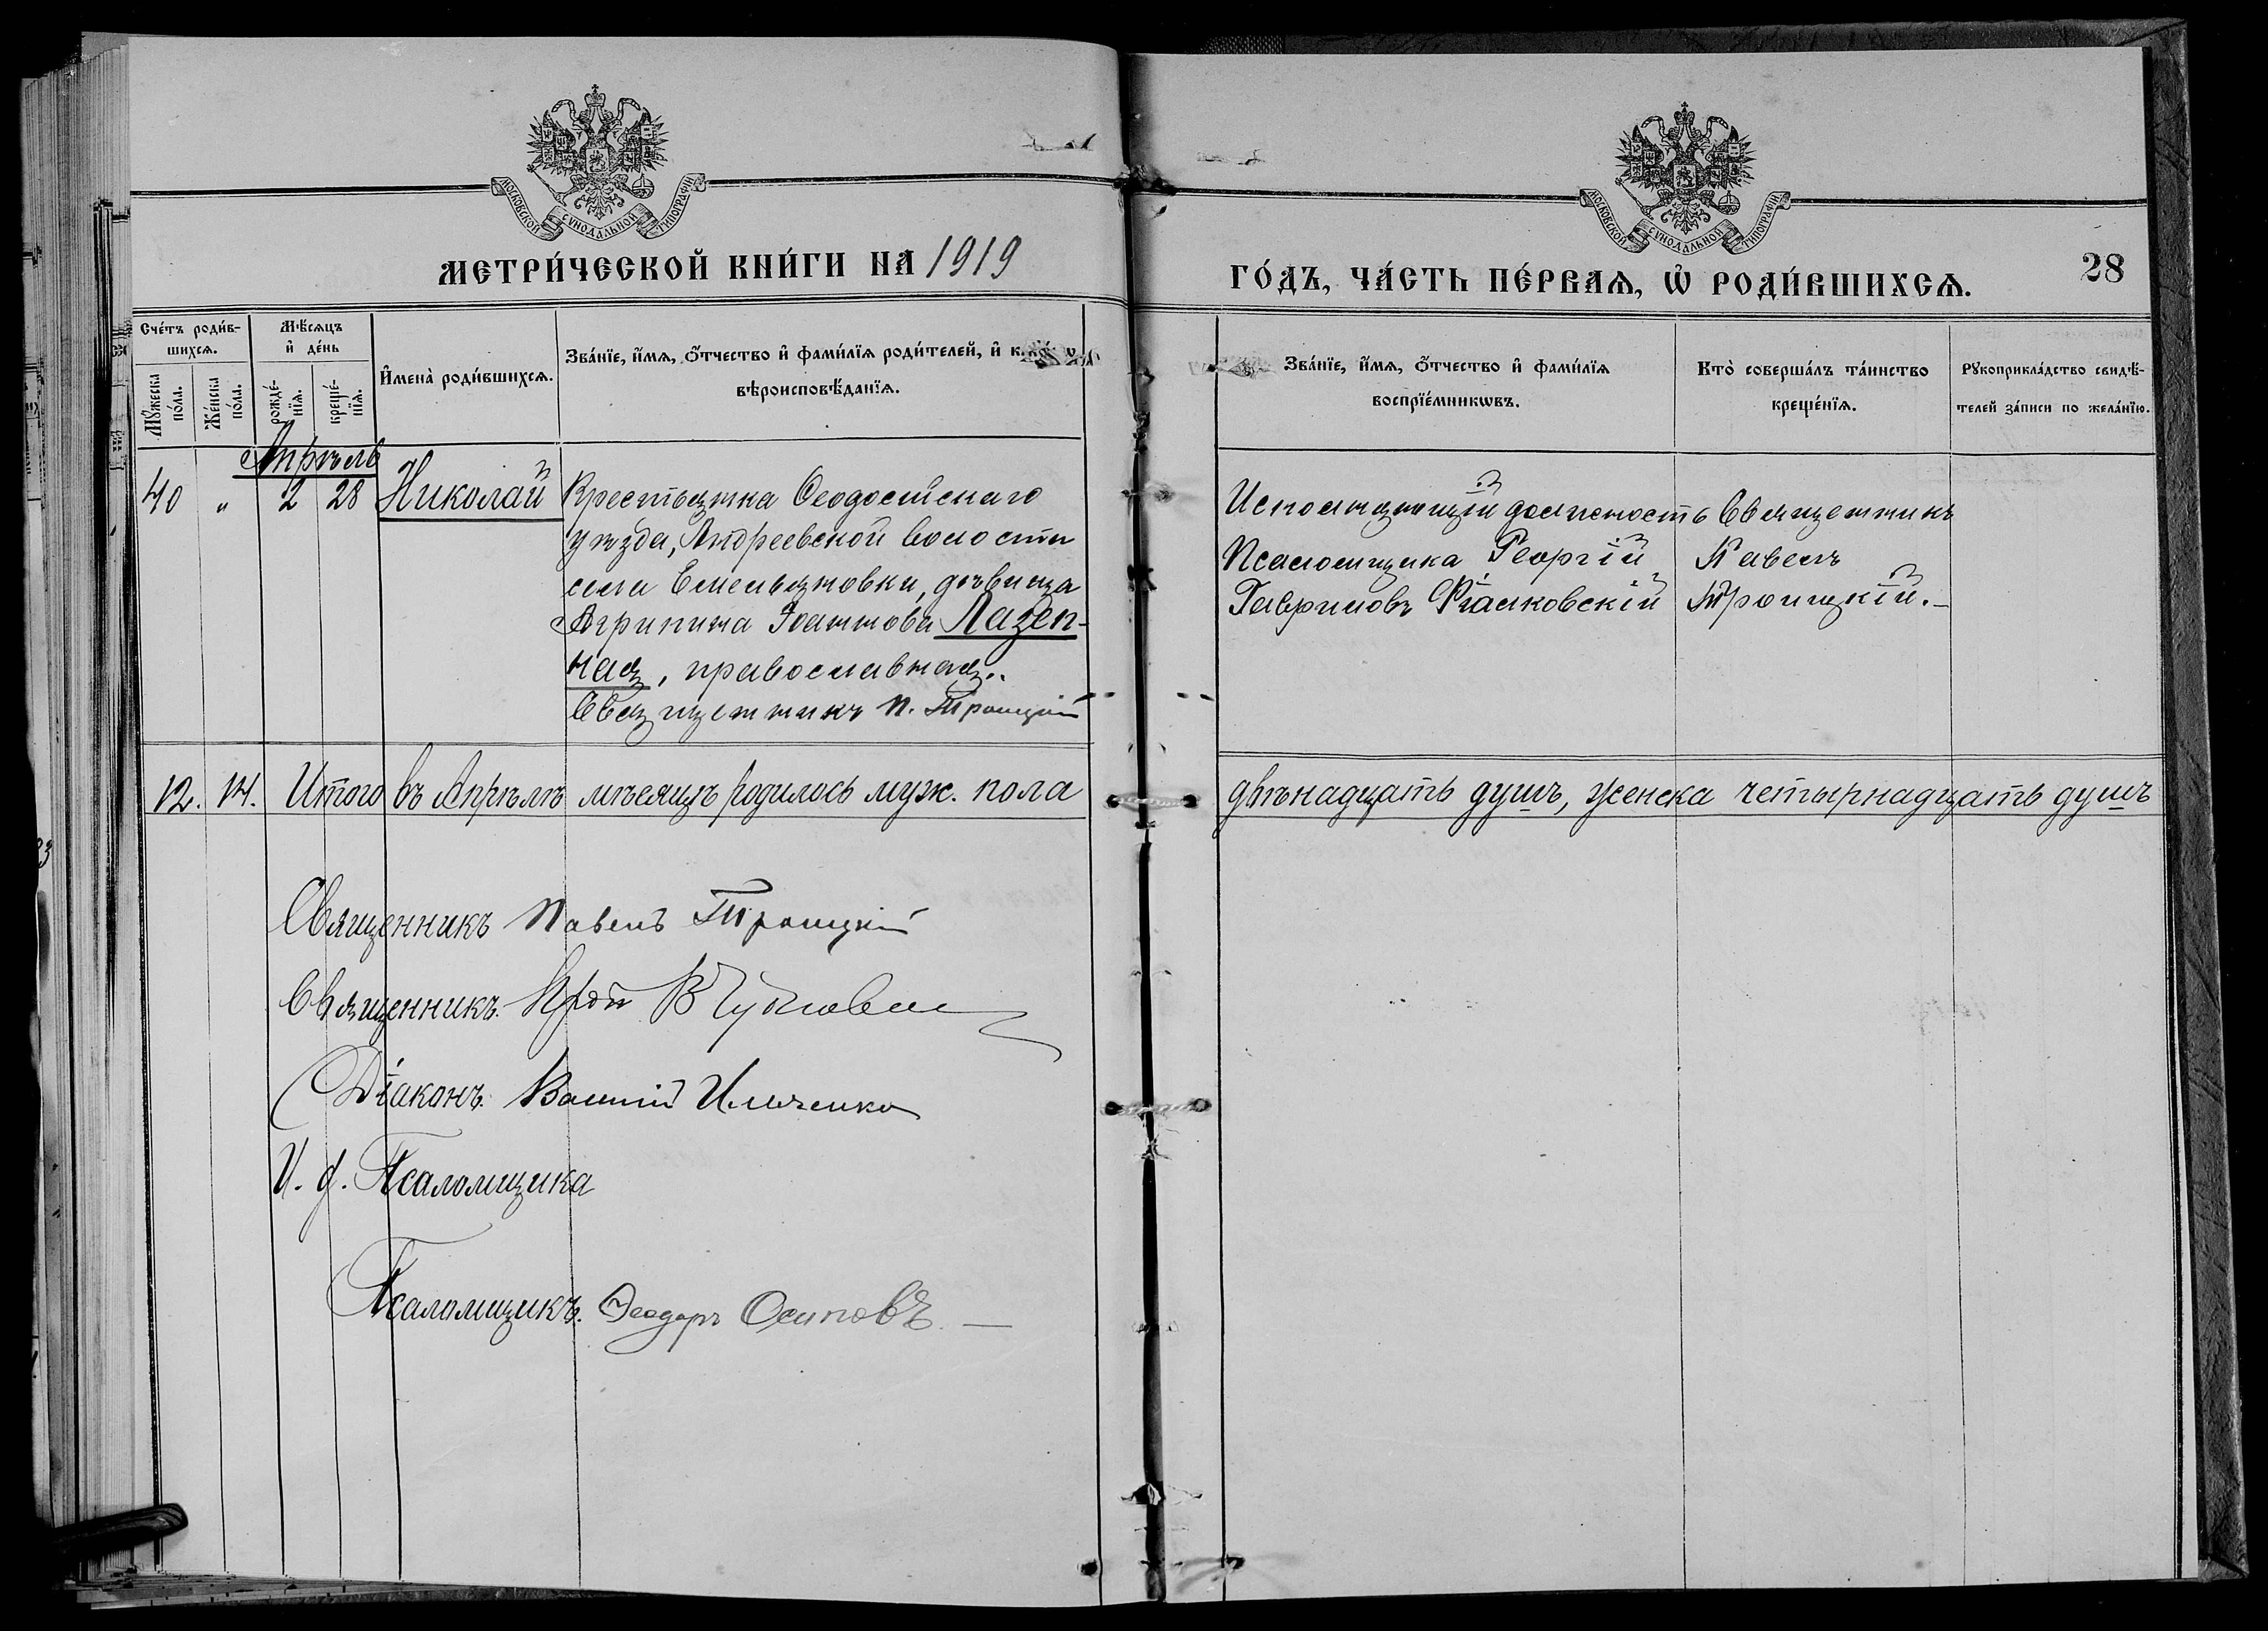 МОСКОВСКОЙ СѴНОДАЛЬНОЙ ТИПОГРАФІИ
МОСКОВСКОЙ СѴНОДАЛЬНОЙ ТИПОГРАФІИ
МЕТРИ́ЧЕСКОЙ КНИ́ГИ НА 1919
ГО́ДЪ, ЧА́СТЬ ПЕ́РВАЯ, Ѡ҆ РОДИ́ВШИХСЯ.
28
Сче́тъ роди́в-
шихся.
Мѣ́сяцъ
и҆ де́нь
Мꙋ́жеска
по́ла.
Же́нска
по́ла.
рожде́-
нїя.
креще́-
нїя.
И҆мена̀ роди́вшихся.
Зва́нїе, и҆́мя, ѻ҆́тчество и҆ фами́лїя роди́телей, и҆
вѣроисповѣ́данїя.
Зва́нїе, и҆́мя, ѻ҆́тчество и҆ фами́лїя
воспрїе́мникѡвъ.
Кто̀ соверша́лъ та́инство
креще́нїя.
Рꙋкоприкла́дство свидѣ́-
телей за́писи по жела́нїю.
Апрѣль
40 " 2 28 Николай Крестьянка Ѳеодосійскаго
уѣзда, Андреевской волости
села Емельяновки, дѣвица
Агрипина Іоаннова Лазеп-
ная, православная.
Священникъ П. Троицкій
Исполняющій должность
Псаломщика Георгій
Гавриловъ Фіалковскій
Священникъ
Павелъ
Троицкій.
12. 14. Итого въ Апрѣлѣ мѣсяцѣ родилось муж. пола двѣнадцать душъ, женска четырнадцать душъ
Священникъ Павелъ Троицкій
Священникъ. Прот В
Діаконъ. Василій Ильченко
И. д. Псаломщика
Псаломщикъ. Ѳеодоръ Осиповъ.